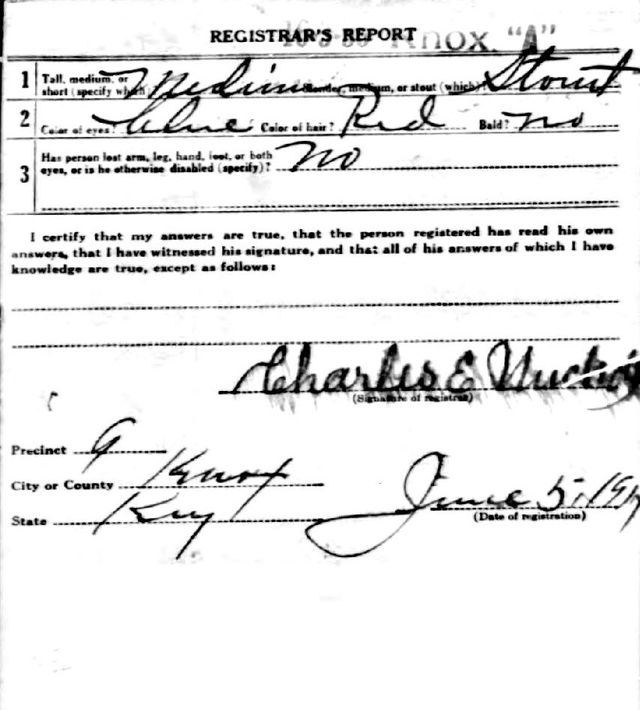 REGISTRAR'S REPORT
Knox. "A"
1 Tall, medium, or short (specify which)? Medium Slender, medium, or stout (which)? Stout
2 Color of eyes? Blue Color of hair? Red Bald? no
3 Has person lost arm, leg, hand, foot, or both
eyes, or is he otherwise disabled (specify)? no
I certify that my answers are true, that the person registered has read his own
answers, that I have witnessed his signature, and that all of his answers of which I have
knowledge are true, except as follows:
Charles E
(Signature of registrar)
Precinct 9
City or County Knox
State Ky
June 5, 1917
(Date of registration)